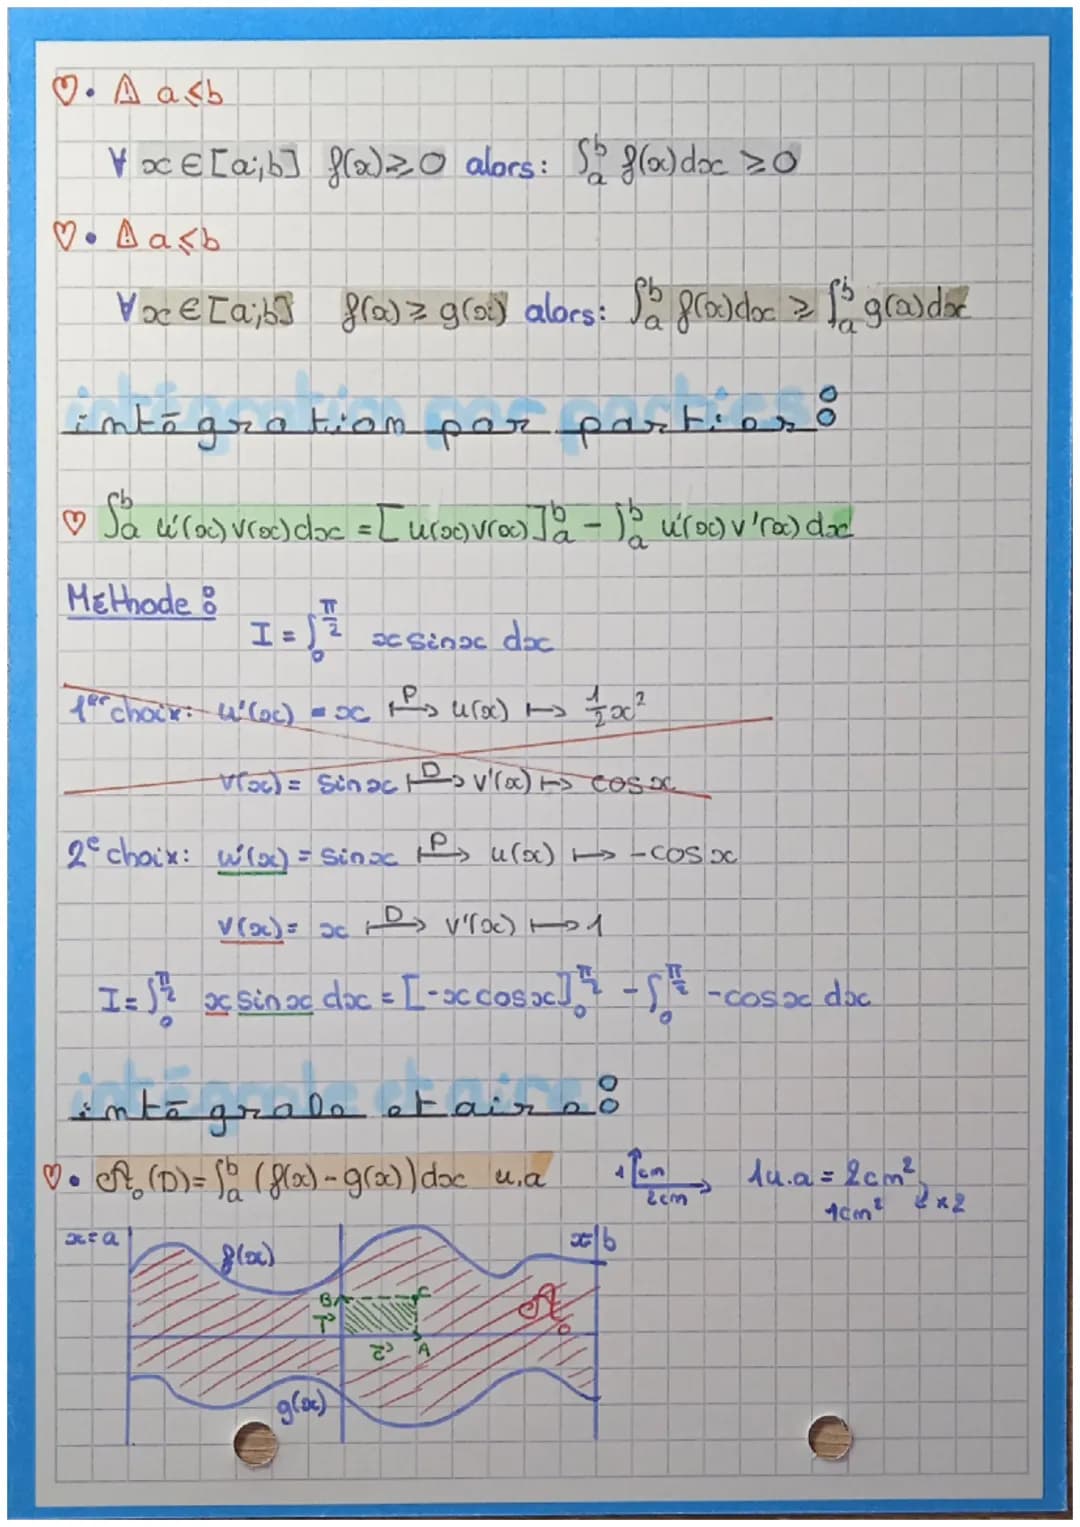 ♡• ⚠ a⩽b
∀ x ∈ [a;b] f(x)⩾0 alors: ∫ₐᵇ f(x)dx ⩾0
♡• ⚠ a⩽b
∀x ∈ [a;b] f(x)⩾ g(x) alors: ∫ₐᵇ f(x)dx ⩾ ∫ₐᵇ g(x)dx
intégration par parties :
♡ ∫ₐᵇ u'(x)v(x)dx = [u(x)v(x)]ₐᵇ - ∫ₐᵇ u'(x)v'(x)dx
Méthode :
I = ∫₀^(π/2) x sinx dx
1er choix: u'(x) = x ↦ᴾ u(x) ↦ 1/2 x²
v(x) = sinx ↦ᴰ v'(x) ↦ cosx
2e choix: u'(x) = sinx ↦ᴾ u(x) ↦ -cosx
v(x) = x ↦ᴰ v'(x) ↦ 1
I = ∫₀^(π/2) x sinx dx = [-x cosx]₀^(π/2) - ∫₀^(π/2) -cosx dx
intégrale et aire :
♡• 𝒜(D) = ∫ₐᵇ (f(x) - g(x))dx u.a 1cm 2cm 1u.a = 2cm²
1cm² x2
x=a f(x) x=b
B C 𝒜
J
I A
g(x)